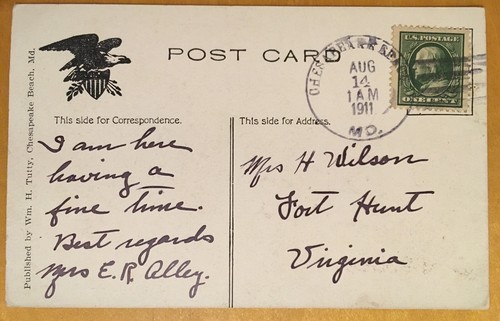 POST CARD
CHESAPEAKE BEACH
AUG
14
1 AM
1911
MD.
U.S. POSTAGE
ONE CENT
Published by Wm. H. Tutty, Chesapeake Beach, Md.
This side for Correspondence.
I am here
having a
fine time.
Best regards
Mrs E. R. Alley.
This side for Address.
Mrs H Wilson
Fort Hunt
Virginia